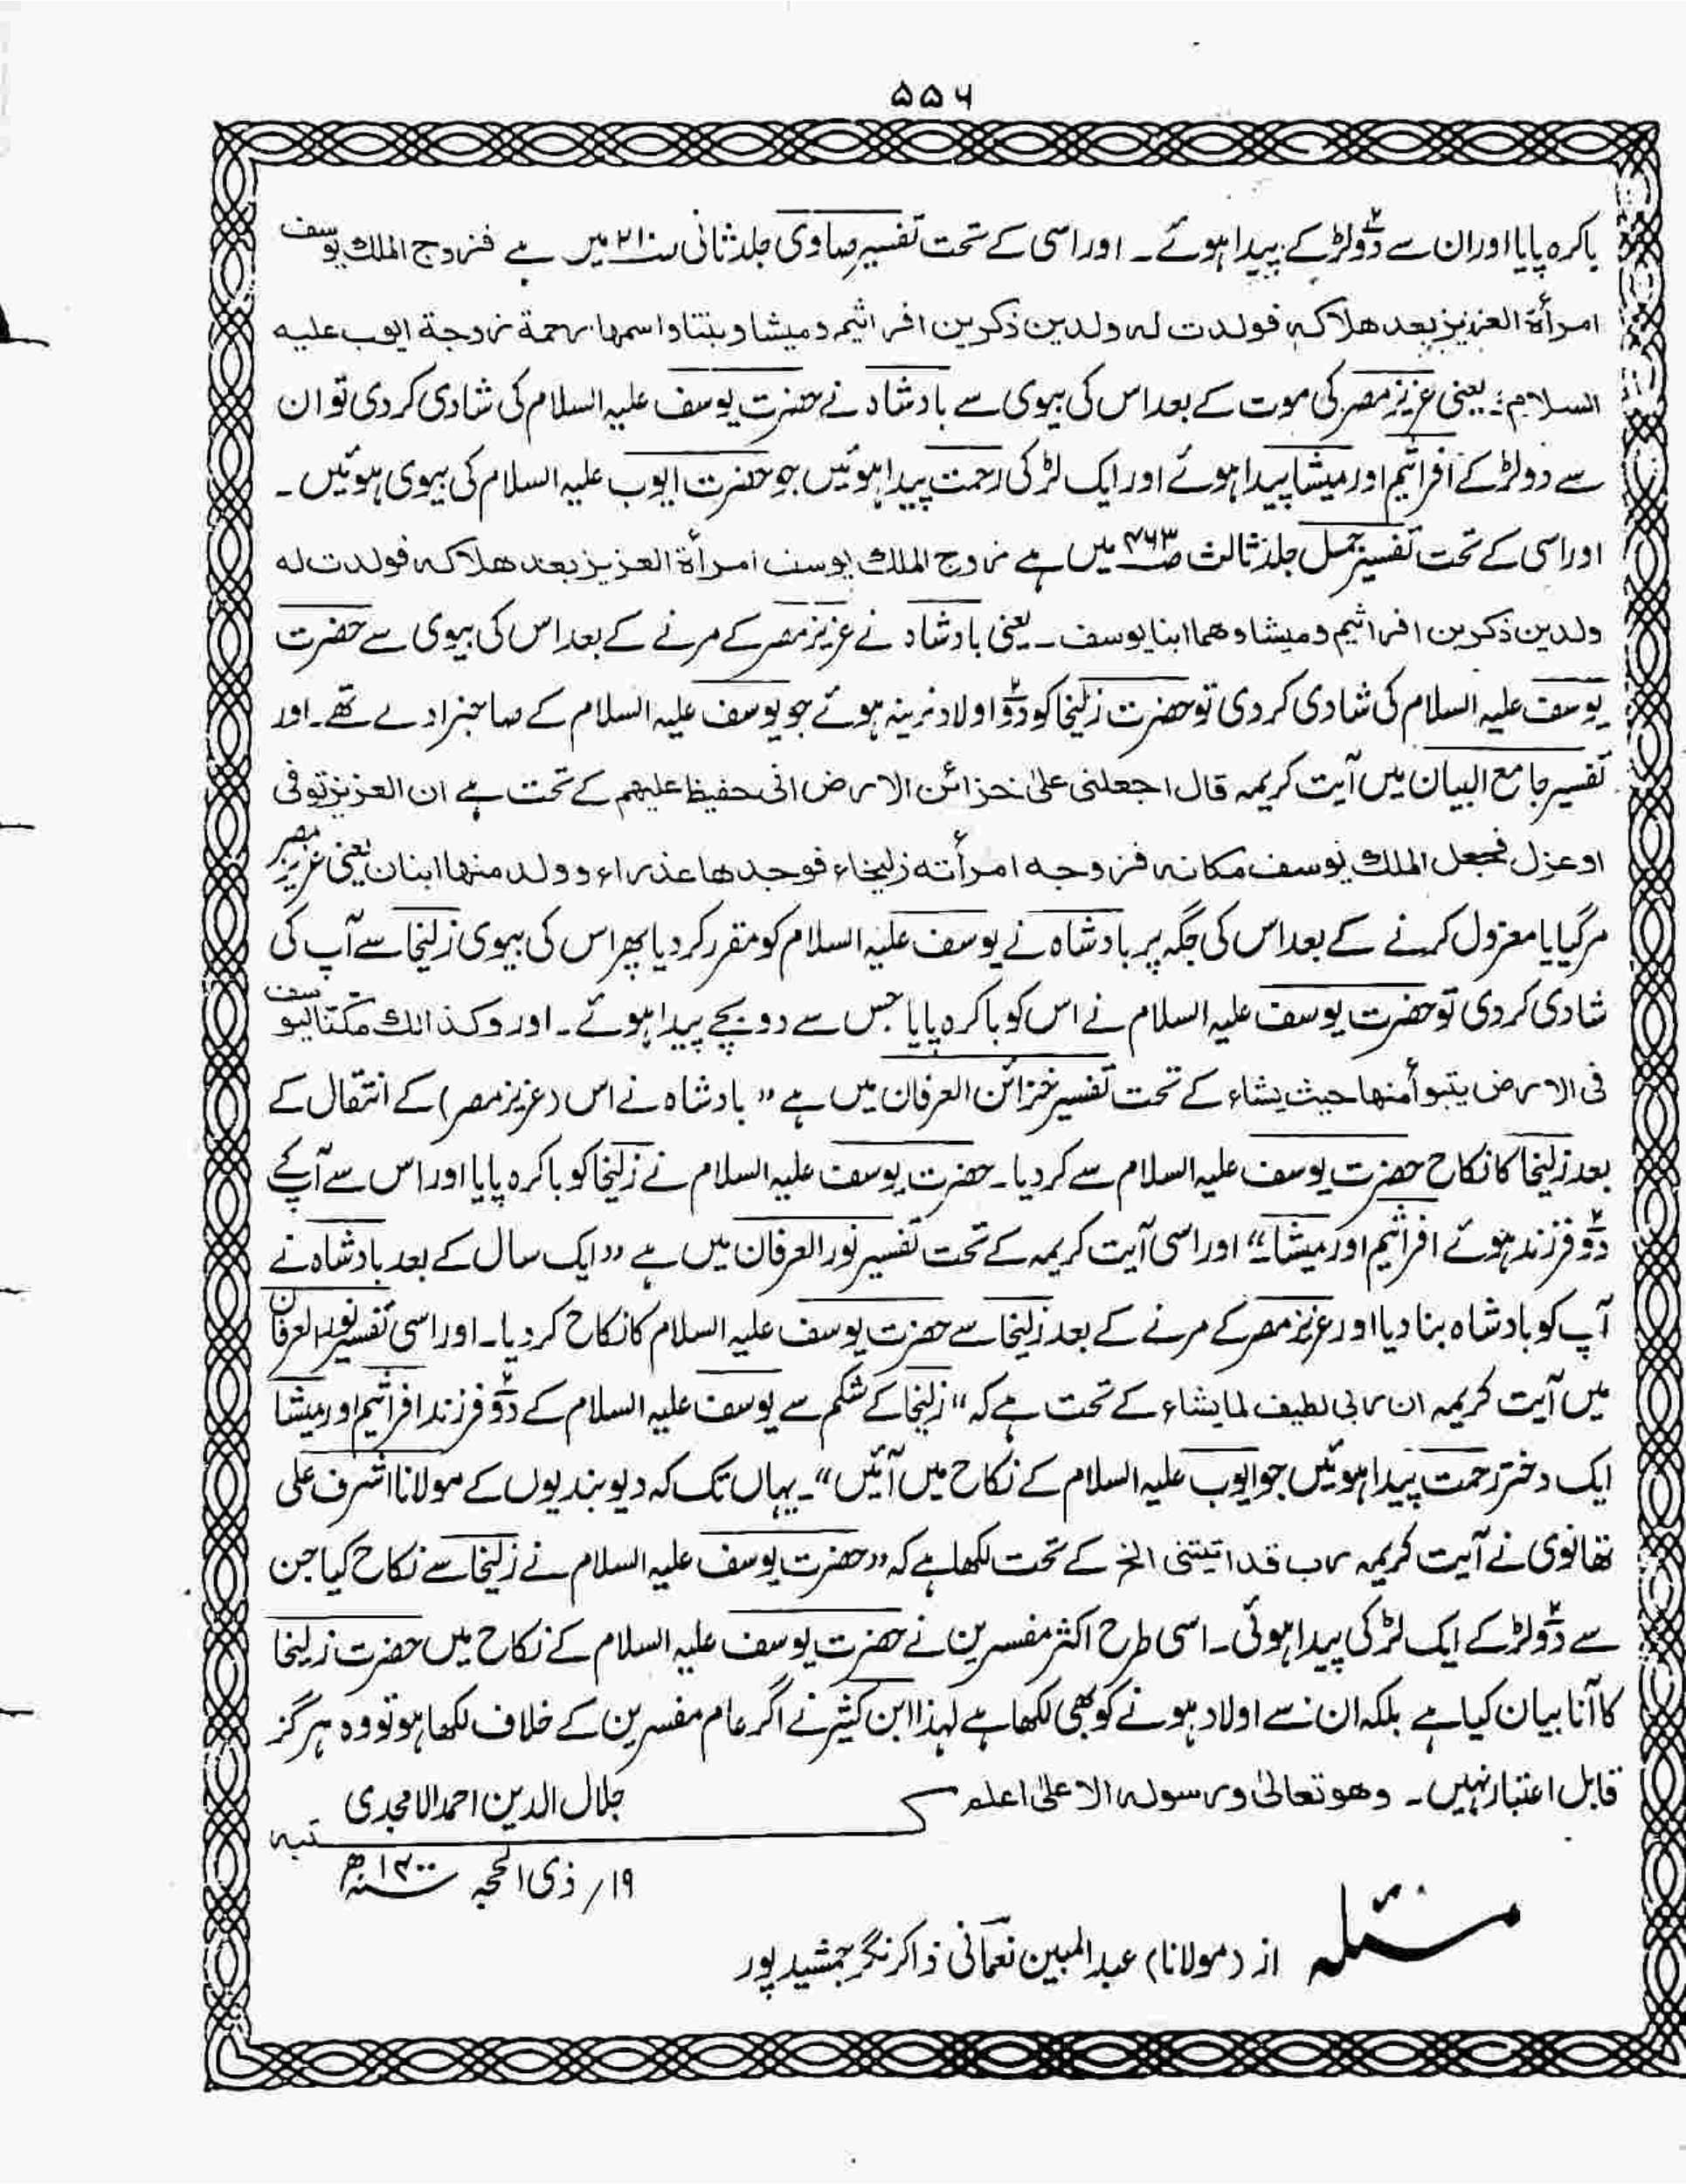 ۵۵۶
باکرہ پایا اور ان سے دو لڑکے پیدا ہوئے۔ اور اسی کے تحت تفسیر صاوی جلد ثانی میں ہے فزوج الملک یوسف
امرأة العزیز بعد ھلاکہ فولدت لہ ولدین ذکرین افراثیم ومیشا وبنتا واسمها رحمة زوجة ایوب علیہ
السلام: یعنی عزیز مصر کی موت کے بعد اس کی بیوی سے بادشاہ نے حضرت یوسف علیہ السلام کی شادی کردی تو ان
سے دو لڑکے افراثیم اور میشا پیدا ہوئے اور ایک لڑکی رحمت پیدا ہوئیں جو حضرت ایوب علیہ السلام کی بیوی ہوئیں۔
اور اسی کے تحت تفسیر جمل جلد ثالث ص۴۶۳ میں ہے زوج الملک یوسف امرأة العزیز بعد ھلاکہ فولدت له
ولدین ذکرین افراثیم ومیشا وھما ابنا یوسف۔ یعنی بادشاہ نے عزیز مصر کے مرنے کے بعد اس کی بیوی سے حضرت
یوسف علیہ السلام کی شادی کردی تو حضرت زلیخا کو دو اولاد نرینہ ہوئے جو یوسف علیہ السلام کے صاحبزادے تھے۔ اور
تفسیر جامع البیان میں آیت کریمہ قال اجعلنی علیٰ خزائن الارض انی حفیظ علیھم کے تحت ہے ان العزیز توفی
او عزل فجعل الملک یوسف مکانہ فزوجه امرأته زلیخاء فوجدھا عذراء وولد منھا ابنان یعنی عزیز مصر
مرگیا یا معزول کرنے کے بعد اس کی جگہ پر بادشاہ نے یوسف علیہ السلام کو مقرر کردیا پھر اس کی بیوی زلیخا سے آپ کی
شادی کردی تو حضرت یوسف علیہ السلام نے اس کو باکرہ پایا جس سے دو بچے پیدا ہوئے۔ اور وکذالك مکّنّا لیوسف
فی الارض یتبوأ منھا حیث یشاء کے تحت تفسیر خزائن العرفان میں ہے ”بادشاہ نے اس (عزیز مصر) کے انتقال کے
بعد زلیخا کا نکاح حضرت یوسف علیہ السلام سے کردیا۔ حضرت یوسف علیہ السلام نے زلیخا کو باکرہ پایا اور اس سے آپکے
دو فرزند ہوئے افراثیم اور میشا۔“ اور اسی آیت کریمہ کے تحت تفسیر نور العرفان میں ہے ”ایک سال کے بعد بادشاہ نے
آپ کو بادشاہ بنادیا اور عزیز مصر کے مرنے کے بعد زلیخا سے حضرت یوسف علیہ السلام کا نکاح کردیا۔ اور اسی تفسیر نور العرفان
میں آیت کریمہ ان ربی لطیف لما یشاء کے تحت ہے کہ ”زلیخا کے شکم سے یوسف علیہ السلام کے دو فرزند افراثیم اور میشا
ایک دختر رحمت پیدا ہوئیں جو ایوب علیہ السلام کے نکاح میں آئیں“۔ یہاں تک کہ دیوبندیوں کے مولانا اشرف علی
تھانوی نے آیت کریمہ رب قد اتیتنی الخ کے تحت لکھا ہے کہ ”حضرت یوسف علیہ السلام نے زلیخا سے نکاح کیا جن
سے دو لڑکے ایک لڑکی پیدا ہوئی۔ اسی طرح اکثر مفسرین نے حضرت یوسف علیہ السلام کے نکاح میں حضرت زلیخا
کا آنا بیان کیا ہے بلکہ ان سے اولاد ہونے کو بھی لکھا ہے لہذا ابن کثیر نے اگر عام مفسرین کے خلاف لکھا ہو تو وہ ہرگز
قابل اعتبار نہیں۔ وھو تعالیٰ ورسولہ الاعلیٰ اعلم
کتبہ جلال الدین احمد الامجدی
۱۹/ ذی الحجہ ۱۴۰۰ھ
مسئلہ از (مولانا) عبدالمبین نعمانی ذاکرنگر جمشیدپور